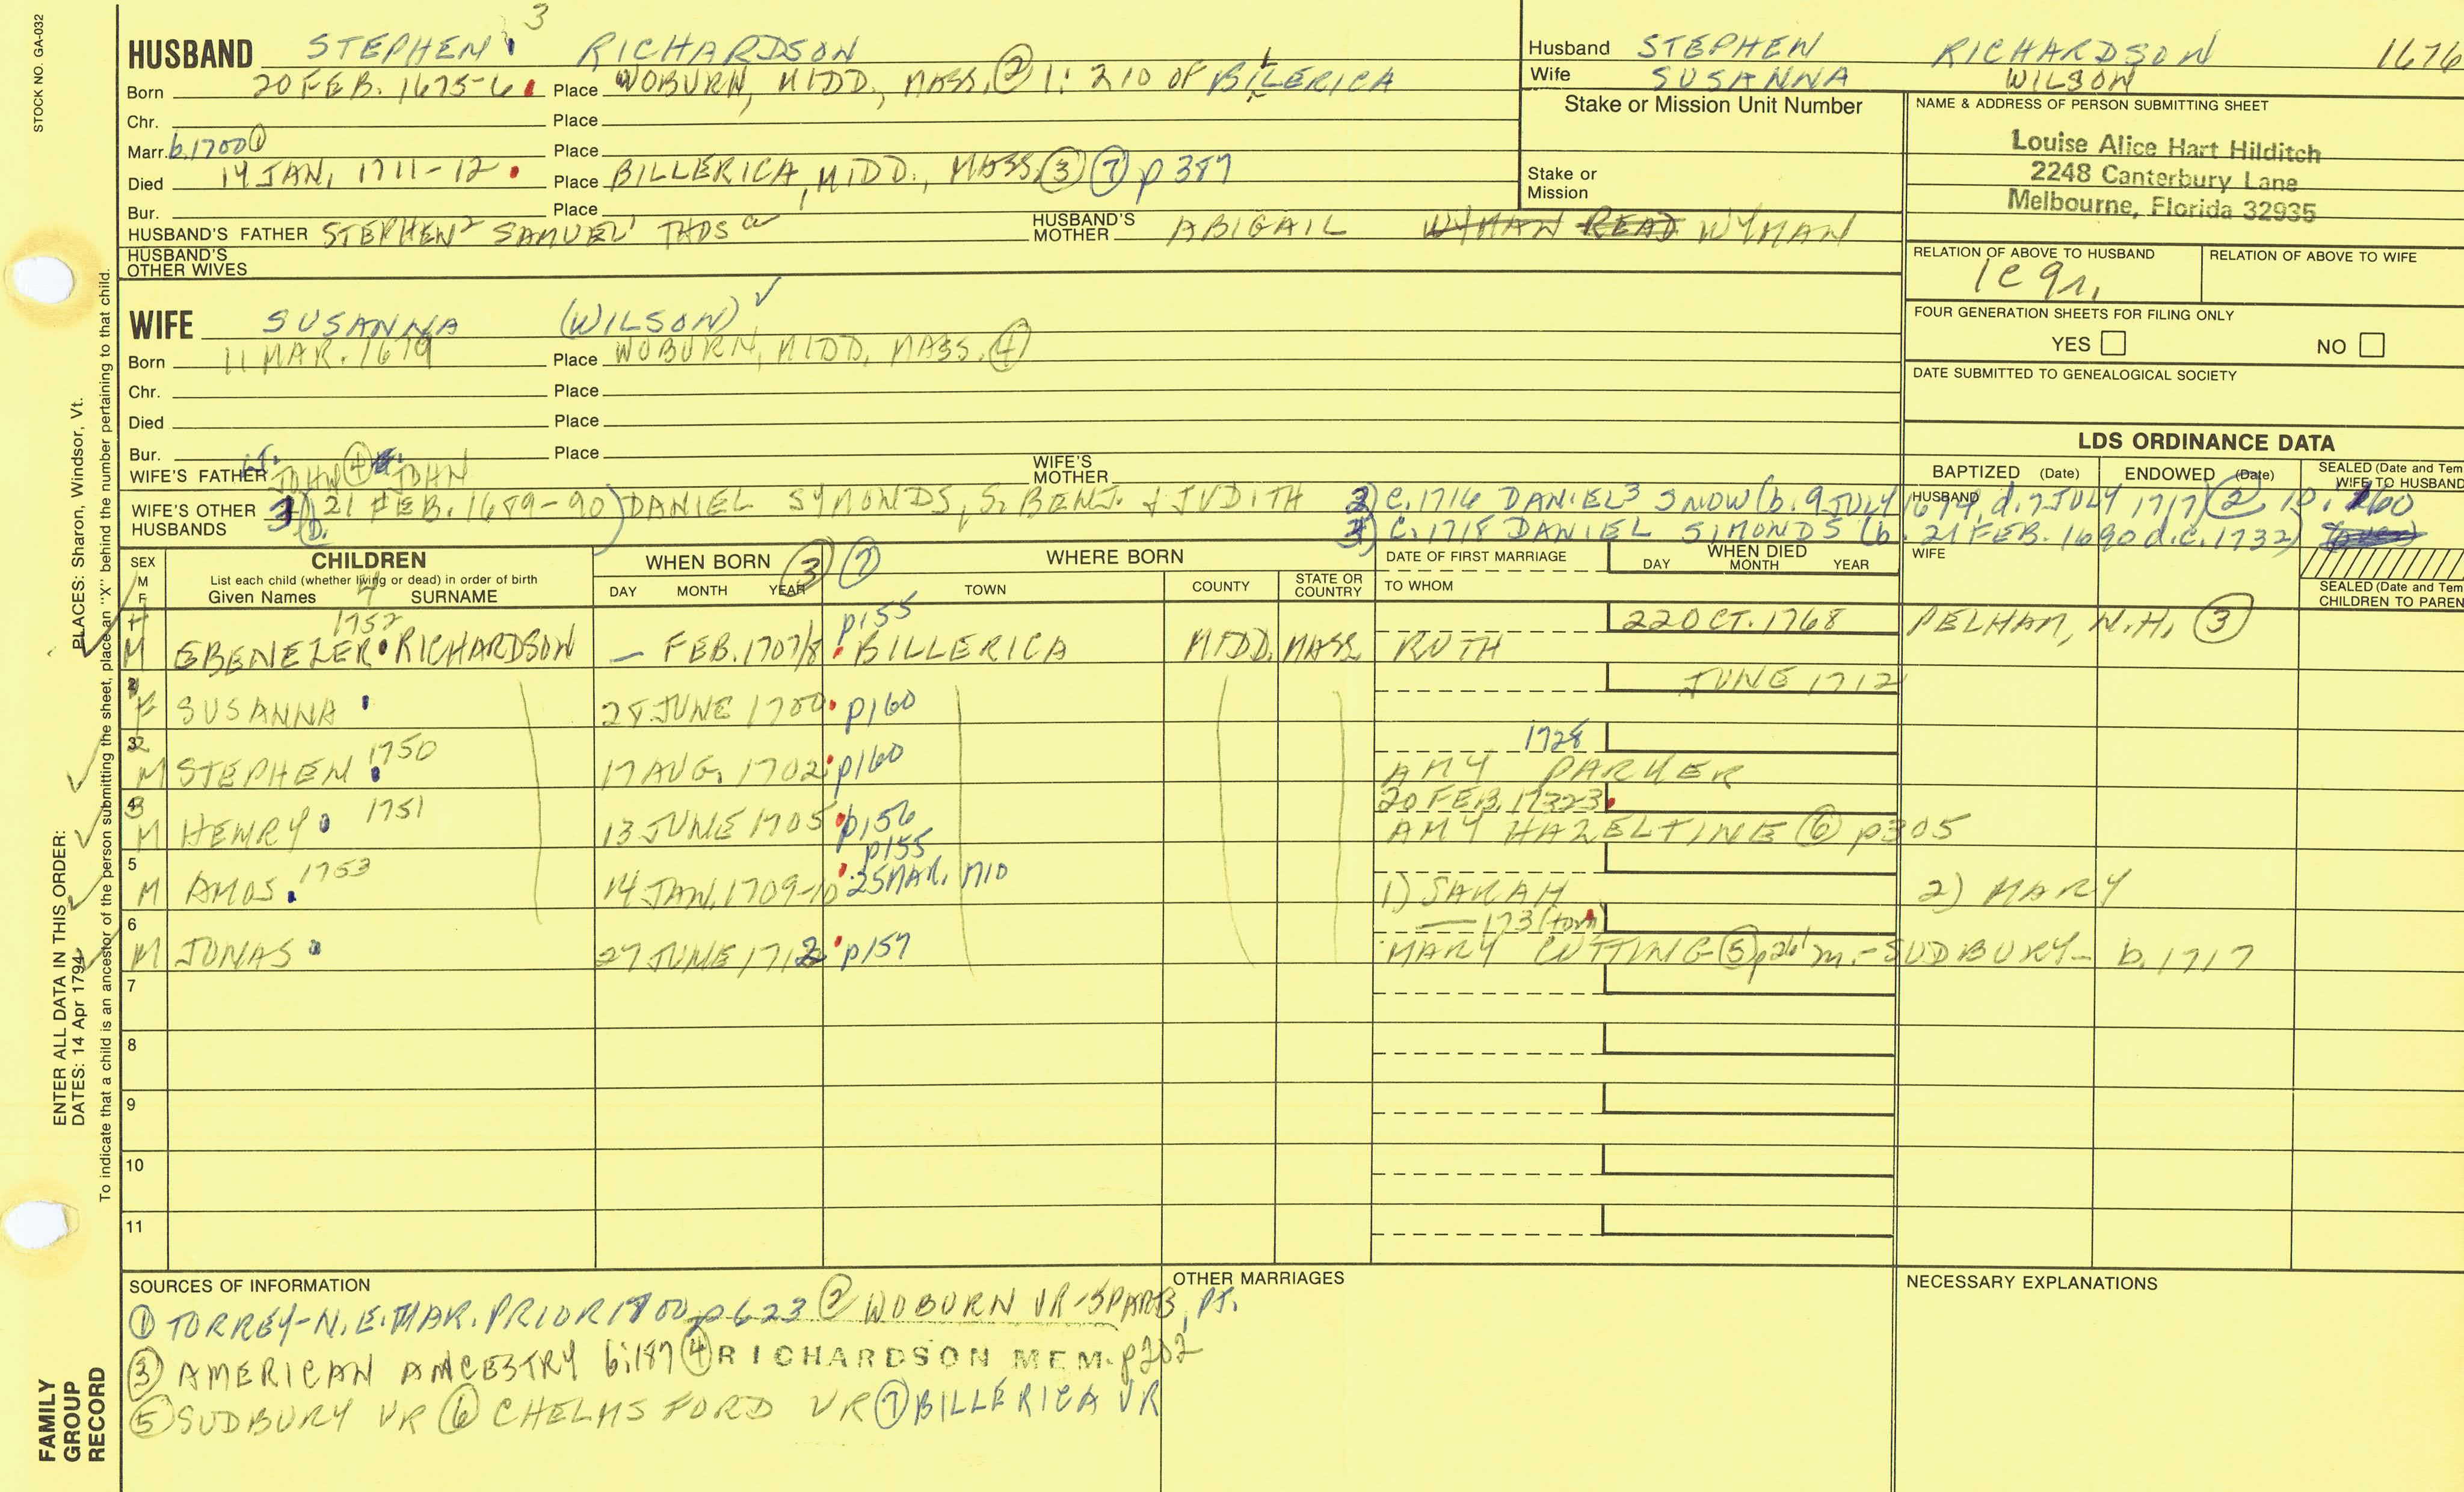 STOCK NO. GA-032
HUSBAND STEPHEN 3 RICHARDSON
Born 20 FEB. 1675-6 Place WOBURN, MIDD., MASS. ② 1: 210 OF BILLERICA
Chr. Place
Marr. b. 1700 ① Place
Died 14 JAN, 1711-12 Place BILLERICA, MIDD., MASS ③ ⑦ p 387
Bur. Place
HUSBAND'S FATHER STEPHEN² SAMUEL¹ THOS HUSBAND'S MOTHER ABIGAIL WYMAN READ WYMAN
HUSBAND'S OTHER WIVES
Husband STEPHEN RICHARDSON 1676
Wife SUSANNA WILSON
Stake or Mission Unit Number
Stake or Mission
NAME & ADDRESS OF PERSON SUBMITTING SHEET
Louise Alice Hart Hilditch
2248 Canterbury Lane
Melbourne, Florida 32935
RELATION OF ABOVE TO HUSBAND RELATION OF ABOVE TO WIFE
FOUR GENERATION SHEETS FOR FILING ONLY
YES NO
DATE SUBMITTED TO GENEALOGICAL SOCIETY
WIFE SUSANNA (WILSON) ✓
Born 11 MAR. 1679 Place WOBURN, MIDD, MASS. ④
Chr. Place
Died Place
Bur. Place
WIFE'S FATHER LT. JOHN ④ JOHN WIFE'S MOTHER
WIFE'S OTHER HUSBANDS 3) (b. 21 FEB. 1689-90) DANIEL SYMONDS, S. BENJ. & JUDITH 2) C. 1716 DANIEL³ SNOW (b. 9 JULY 1674, d. 7 JULY 1717) ② 10. 160
3) C. 1718 DANIEL SIMONDS (b. 21 FEB. 1690 d. c. 1732)
LDS ORDINANCE DATA
BAPTIZED (Date) ENDOWED (Date) SEALED (Date and Tem WIFE TO HUSBAND
HUSBAND
WIFE
SEALED (Date and Tem CHILDREN TO PAREN
SEX M F CHILDREN List each child (whether living or dead) in order of birth Given Names SURNAME
WHEN BORN DAY MONTH YEAR ③ ⑦ WHERE BORN TOWN COUNTY STATE OR COUNTRY
DATE OF FIRST MARRIAGE TO WHOM WHEN DIED DAY MONTH YEAR
4 M EBENEZER 1752 RICHARDSON — FEB. 1707/8 p155 BILLERICA MIDD. MASS. RUTH 22 OCT. 1768 PELHAM, N.H. ③
F SUSANNA 28 JUNE 1700 p160 JUNE 1712
2 M STEPHEN 1750 17 AUG. 1702 p160 1728 AMY PARKER
3 M HENRY 1751 13 JUNE 1705 p156 20 FEB. 1732 3 AMY HAZELTINE ⑥ p305
5 M AMOS 1753 14 JAN. 1709-10 p155 25 MAR. 1710 1) SARAH 2) MARY
6 M JONAS 27 JUNE 1712 p157 — 173(torn) MARY CUTTING ⑤ p261 m. - SUDBURY - b. 1717
7
8
9
10
11
SOURCES OF INFORMATION
① TORREY-N.E. MAR. PRIOR 1700 p623 ② WOBURN VR - 3 PARTS, PT.
③ AMERICAN ANCESTRY 6:187 ④ RICHARDSON MEM. p202
⑤ SUDBURY VR ⑥ CHELMSFORD VR ⑦ BILLERICA VR
OTHER MARRIAGES
NECESSARY EXPLANATIONS
ENTER ALL DATA IN THIS ORDER:
DATES: 14 Apr 1794
PLACES: Sharon, Windsor, Vt.
To indicate that a child is an ancestor of the person submitting the sheet, place an "X" behind the number pertaining to that child.
FAMILY
GROUP
RECORD